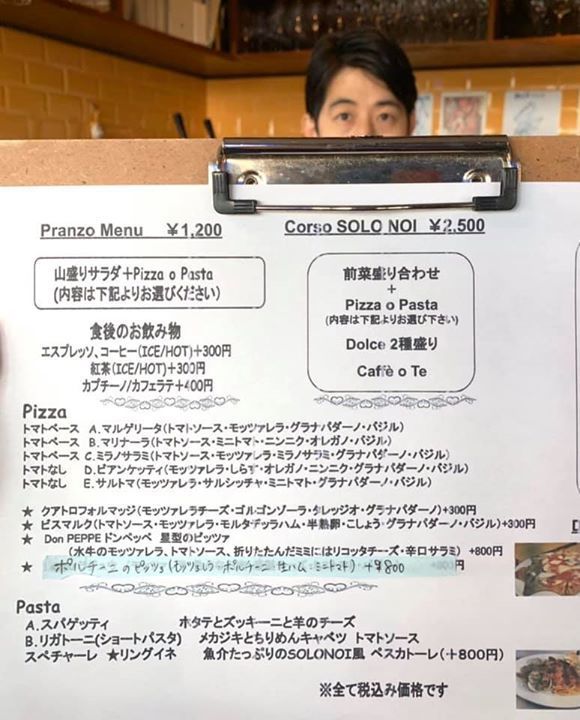 Pranzo Menu ¥1,200
山盛りサラダ+Pizza o Pasta
(内容は下記よりお選びください)
食後のお飲み物
エスプレッソ、コーヒー(ICE/HOT)+300円
紅茶(ICE/HOT)+300円
カプチーノ/カフェラテ+400円
Corso SOLO NOI ¥2,500
前菜盛り合わせ
+
Pizza o Pasta
(内容は下記よりお選び下さい)
Dolce 2種盛り
Caffè o Te
Pizza
トマトベース A.マルゲリータ(トマトソース・モッツァレラ・グラナパダーノ・バジル)
トマトベース B.マリナーラ(トマトソース・ミニトマト・ニンニク・オレガノ・バジル)
トマトベース C.ミラノサラミ(トマトソース・モッツァレラ・ミラノサラミ・グラナパダーノ・バジル)
トマトなし D.ビアンケッティ(モッツァレラ・しらす・オレガノ・ニンニク・グラナパダーノ・バジル)
トマトなし E.サルトマ(モッツァレラ・サルシッチャ・ミニトマト・グラナパダーノ・バジル)
★ クアトロフォルマッジ(モッツァレラチーズ・ゴルゴンゾーラ・タレッジオ・グラナパダーノ)+300円
★ ビスマルク(トマトソース・モッツァレラ・モルタデッラハム・半熟卵・こしょう・グラナパダーノ・バジル)+300円
★ Don PEPPEドンペッペ 星型のピッツァ
(水牛のモッツァレラ、トマトソース、折りたたんだミミにはリコッタチーズ・辛口サラミ) +800円
★ ポルチーニのピッツァ(モッツァレラ ポルチーニ 生ハム ミニトマト)+¥800
Pasta
A.スパゲッティ ホタテとズッキーニと羊のチーズ
B.リガトーニ(ショートパスタ) メカジキとちりめんキャベツ トマトソース
スペチャーレ ★リングイネ 魚介たっぷりのSOLONOI風 ペスカトーレ(+800円)
※全て税込み価格です